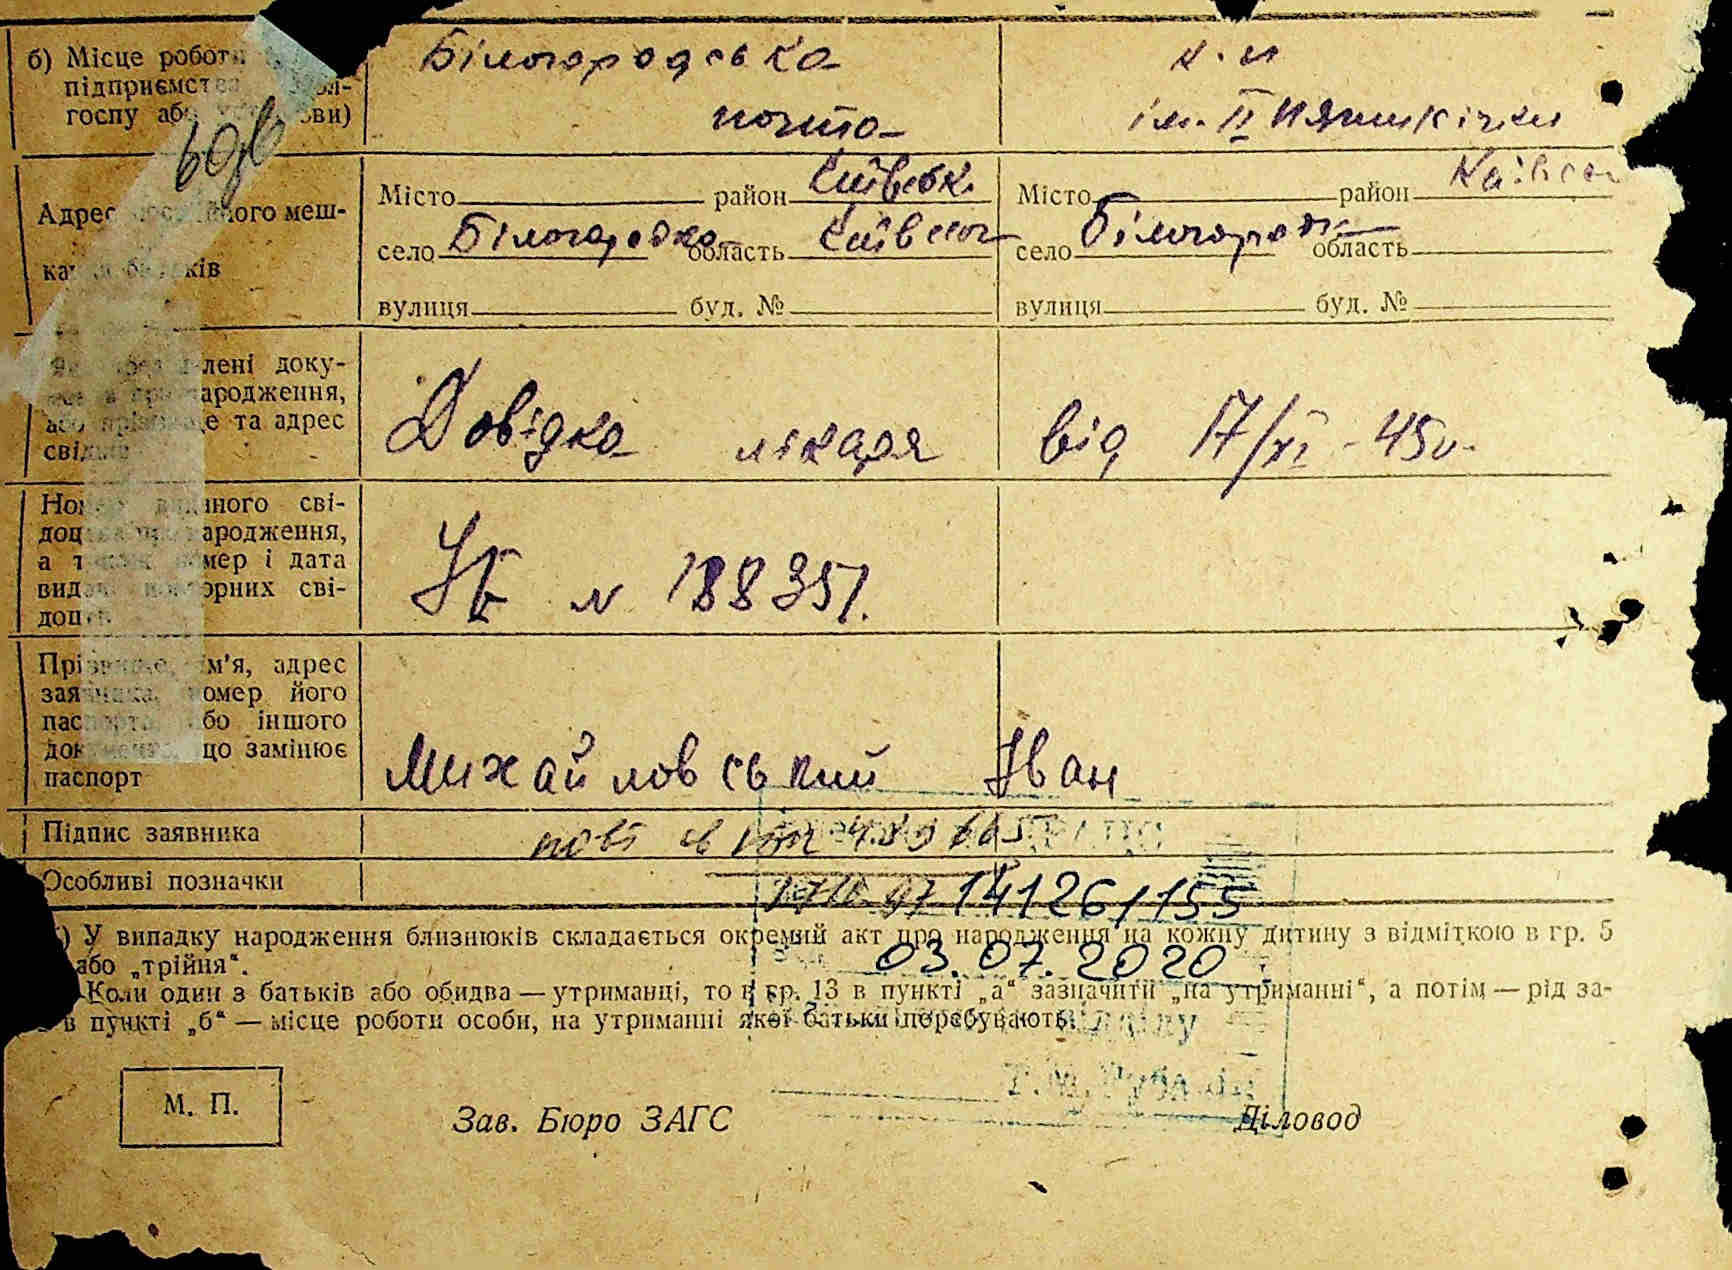 б) Місце роботи
підприємства
госпу або
Білогородська
пошта
ім. II П'ятирічки
Адрес постійного меш-
канця батьків
Місто район Київськ.
село Білогородка область Київськ
вулиця буд. №
Місто район Київськ
село Білогородк область
вулиця буд. №
Які представлені доку-
менти про народження,
або прізвище та адрес
свідків
Довідка лікаря від 17/XI-45р.
Номер виданого сві-
доцтва про народження,
а також номер і дата
видачі повторних сві-
доцтв
УБ № 188351.
Прізвище, ім'я, адрес
заявника, номер його
паспорта або іншого
документа, що замінює
паспорт
Михайловський Іван
Підпис заявника
Особливі позначки
14126/155
03.07.2020
У випадку народження близнюків складається окремий акт про народження на кожну дитину з відміткою в гр. 5
або „трійня“.
Коли один з батьків або обидва — утриманці, то в гр. 13 в пункті „а“ зазначити „на утриманні“, а потім — рід за-
в пункті „б“ — місце роботи особи, на утриманні якої батьки перебувають.
М. П.
Зав. Бюро ЗАГС
Діловод